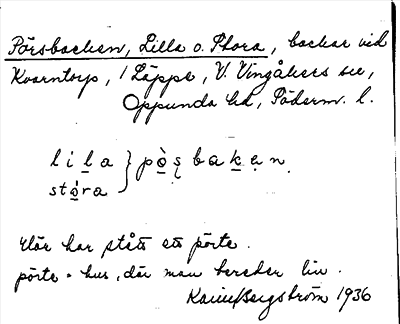 Pörsbacken, Lilla o. Stora, backar vid
Kvarntorp, i Läppe, V. Vingåkers sn,
Oppunda hd, Söderm. l.
lila } pò̤ʂbakan.
stóra
Där har stått en pörte.
pörte = hus, där man bereder lin.
Karin Bergström 1936